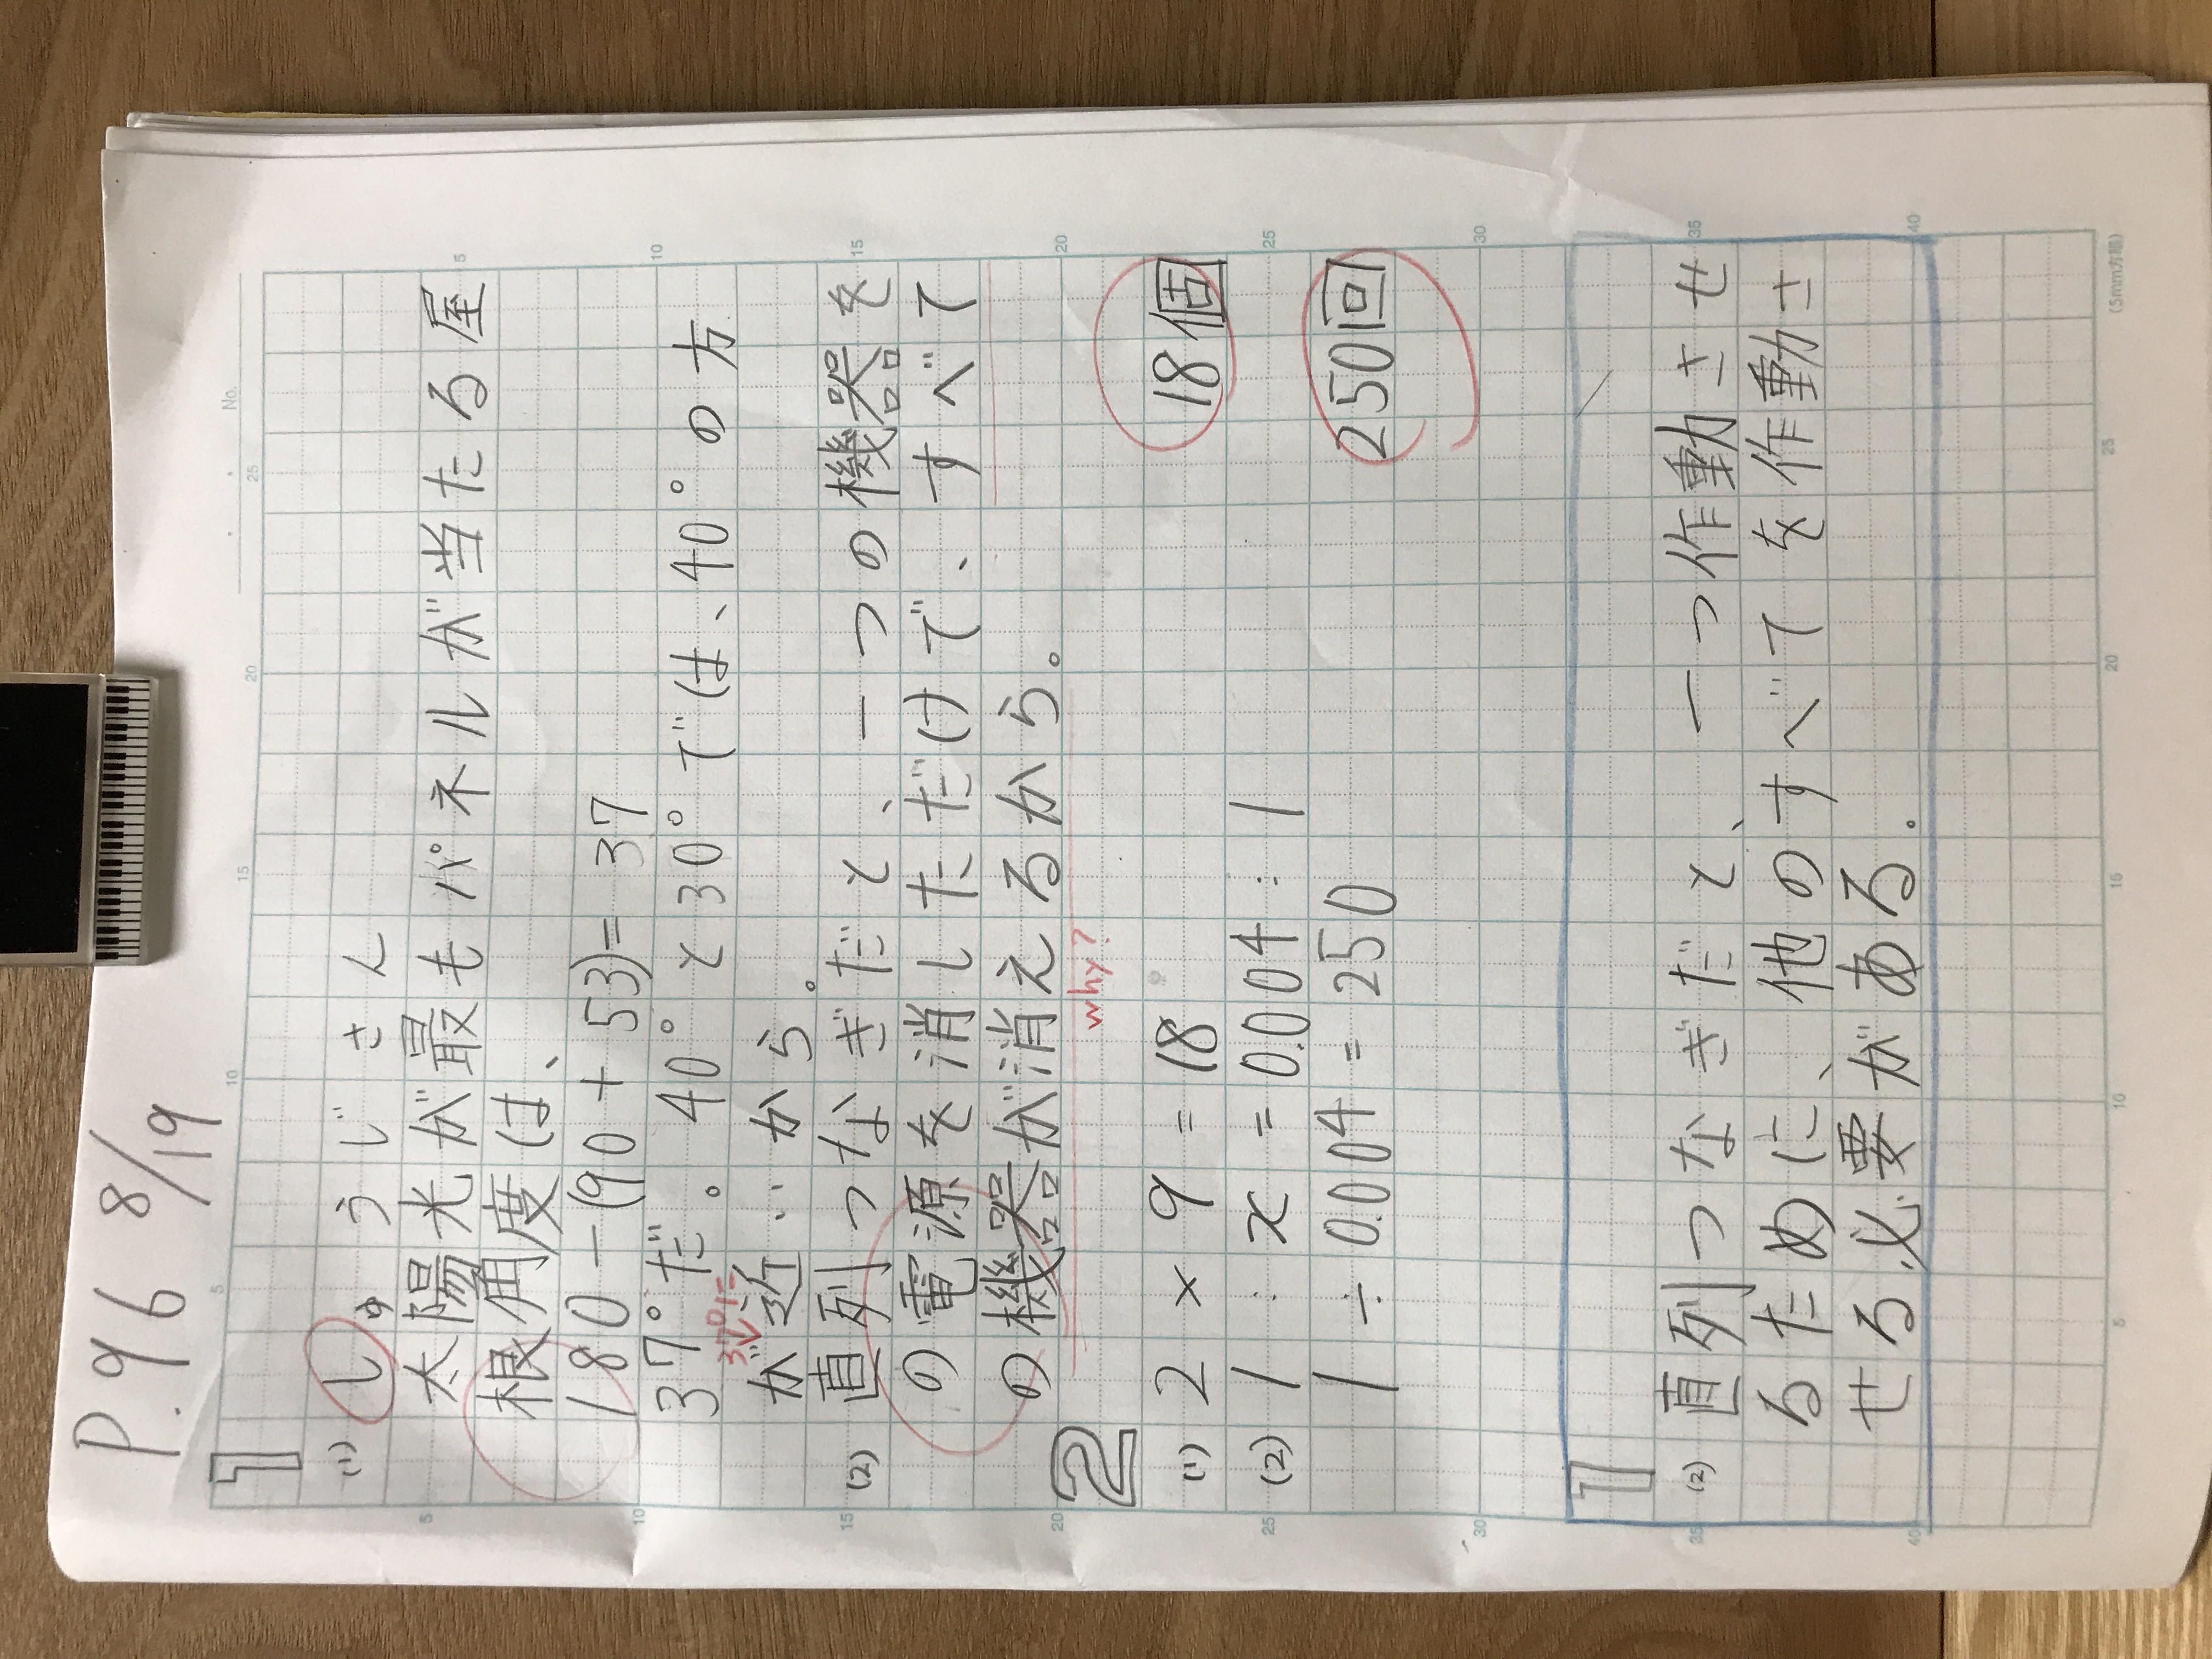 P.96 8/19
No.
1
(1) しゅうじさん
太陽光が最もパネルが当たる屋
根角度は、
180-(90+53)=37
37°だ。40°と30°では、40°の方
37°に
が近いから。
(2) 直列つなぎだと、一つの機器を
の電源を消しただけで、すべて
の機器が消えるから。
why?
2
(1) 2×9=18 18個
(2) 1:x=0.004:1
1÷0.004=250 250回
1
(2) 直列つなぎだと、一つ作動させ
るために、他のすべてを作動さ
せる必要がある。
(5mm方眼)
5 10 15 20 25
5 10 15 20 25 30 35 40
5 10 15 20 25 30 35 40
5 10 15 20 25